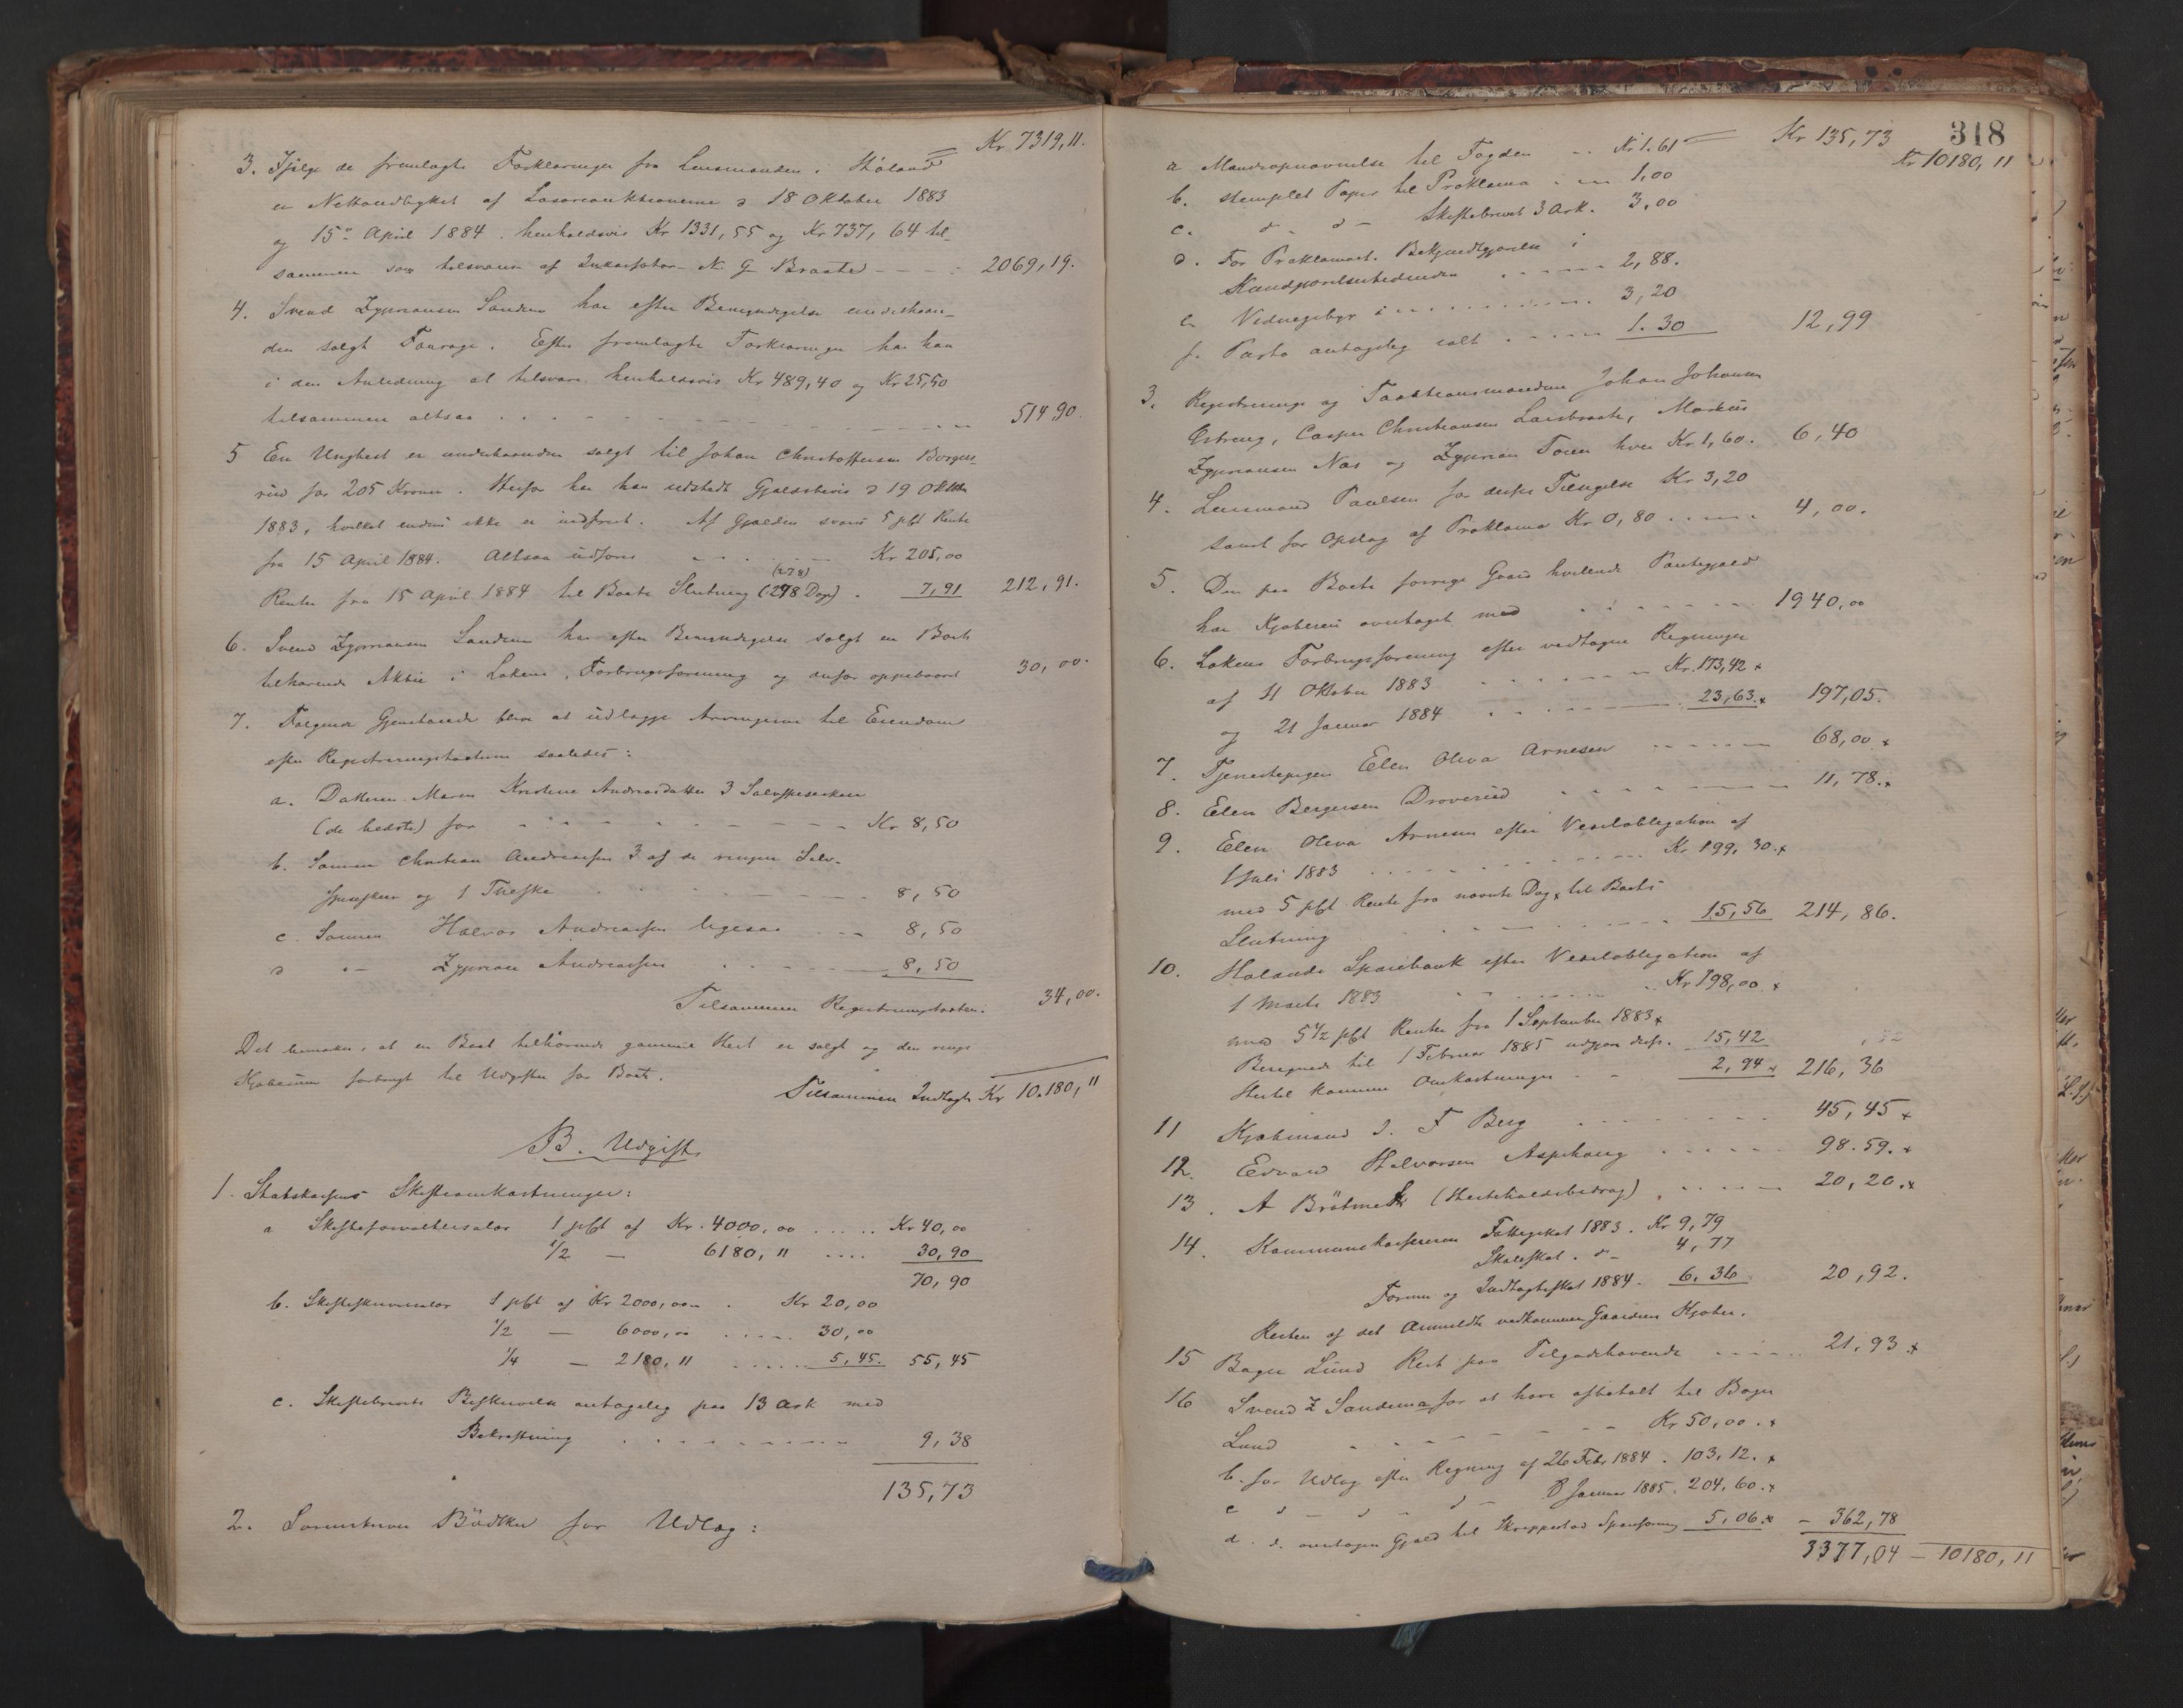 Kr 7319,11.
3. Ifølge de fremlagte Forklaringer fra Lensmanden i Høland
er Nettoudbyttet af Løsøreauktionerne d 18 Oktober 1883
og 15de April 1884 henholdsvis Kr 1331,55 og Kr 737,64 til-
sammen som tilsvares af Inkassator N. G. Braate 2069,19.
4. Svend Zypriansen Sandem har efter Bemyndigelse underhaan-
den solgt Fourage. Efter fremlagte Forklaringer har han
i den Anledning at tilsvare henholdsvis Kr 489,40 og Kr 25,50
tilsammen altsaa 514 90.
5 En Unghest er underhaanden solgt til Johan Christoffersen Borgers-
rud for 205 Kroner. Herfor har han udstedt Gjældsbevis d 19 Oktbr
1883, hvilket endnu ikke er indfriet. Af Gjælden svares 5 pCt Rente
fra 15 April 1884. Altsaa udføres Kr 205,00
(278)
Renter fra 15 April 1884 til Boets Slutning (278 Dage) 7,91 212,91.
6. Svend Zypriansen Sandem har efter Bemyndigelse solgt en Boet
tilhørende Aktie i Løkens Forbrugsforening og derfor oppebaaret 30,00.
7. Følgende Gjenstande blive at udlægge Arvingerne til Eiendom
efter Registreringstaxten saaledes:
a. Datteren Maren Kristine Andreasdatter 3 Sølvspiseskeer
(de bedste) for Kr 8,50
b. Sønnen Christian Andreassen 3 af de ringere Sølv-
spiseskeer og 1 Theske 8,50
c. Sønnen Halvor Andreassen ligesaa 8,50
d - Zyprian Andreassen 8,50
Tilsammen Registreringstaxten. 34,00.
Det bemærkes, at en Boet tilhørende gammel Hest er solgt og den ringe
Kjøbesum forbrugt til Udgifter for Boet.
Tilsammen Indtægt Kr 10.180,11
B. Udgift
1. Statskassens Skifteomkostninger:
a Skifteforvaltersalær 1 pCt af Kr. 4000,00 Kr 40,00
1/2 — 6180,11 30,90
70,90
b. Skifteskriversalær 1 pCt af Kr 2000,00 Kr 20,00
1/2 — 6000,00 30,00
1/4 — 2180,11 5,45. 55,45
c. Skiftebrevets Beskrivelse antagelig paa 13 Ark med
Bekræftning 9,38
135,73
2. Sorenskriver Bödtker for Udlæg:
318
Kr 135,73
Kr 10180,11
a Mandsopnævnelse til Fogden Kr 1.61
b. stemplet Papir til Proklama 1,00
c. d - d - Skiftebrevet 3 Ark. 3,00
d. For Proklamaet. Bekjendtgjørelse i
Kundgjørelsestidenden 2,88.
e. Vidnegebyr i 3,20
f. Porto antagelig ialt 1.30 12,99
3. Registrerings og Taxtionsmændene Johan Johansen
Østreng, Casper Christiansen Lundbraate, Markus
Zypriansen Næs og Zyprian Toien hver Kr. 1,60. 6,40
4. Lensmand Paulsen for dessen Tilsigelse Kr 3,20
samt for Opslag af Proklama Kr 0,80 4,00.
5. Den paa Boets forrige Gaard hvilende Pantegjæld
har Kjøberen overtaget med 1940,00
6. Løkens Forbrugsforening efter vedtagne Regninger
af 11 Oktober 1883 Kr. 173,42 x
og 21 Januar 1884 23,63. x 197,05.
7. Tjenestepigen Elen Oliva Arnesen 68,00 x
8. Elen Bergersen Droverud 11,78. x
9. Elen Oliva Arnesen efter Vexelobligation af
1 Juli 1883 Kr 199,30. x
med 5 pCt Rente fra nævnte Dag x til Boets
Slutning 15,56 214,86.
10. Hølands Sparebank efter Vexelobligation af
1 Marts 1883 Kr 198,00 x
med 5 1/2 pCt Renter fra 1 September 1883 x
Beregnede til 1 Februar 1885 udgjør disse. 15,42
Hertil kommer Omkostninger 2,94 x 216,36
11 Kjøbmand J. F Berg 45,45 x
12. Edvard Halvorsen Asphaug 98.59. x
13. A Bråtmest (Hesteholdsbidrag) 20,20. x
14. Kommunekassereren Fattigskat 1883. Kr 9,79
Skoleskat. d- 4,77
Formue og Indtægtsskat 1884. 6,36 20,92.
Resten af det Anmeldte vedkommer Gaardens Kjøber.
15 Bager Lund Rest paa Tilgodehavende 21,93 x
16 Svend Z Sandem a for at have afbetalt til Bager
Lund Kr 50,00. x
b. for Udlæg efter Regning af 26 Febr 1884. 103,12. x
c d - d - d - 8 Januar 1885. 204,60. x
d. d. overtagen Gjæld til Skreppestad Spareforening 5,06. x — 362,78
3377,04 — 10180,11